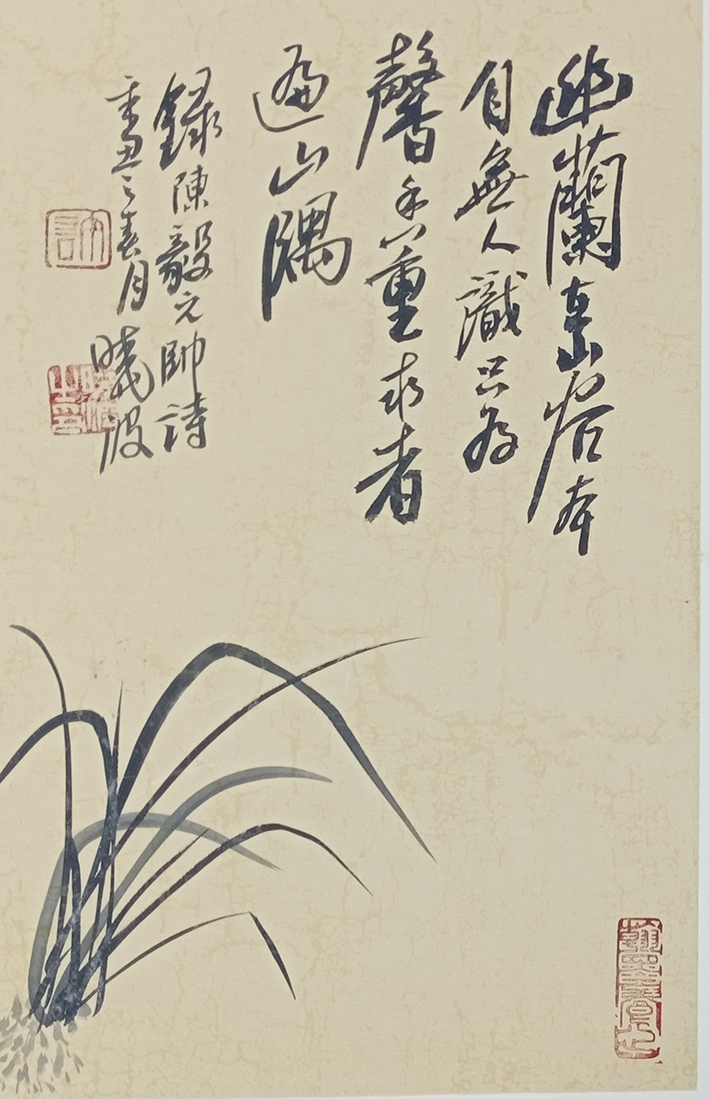 幽蘭在山谷本
自無人識只為
馨香重求者
遍山隅
錄陳毅元帥詩
辛丑之春月 曉波